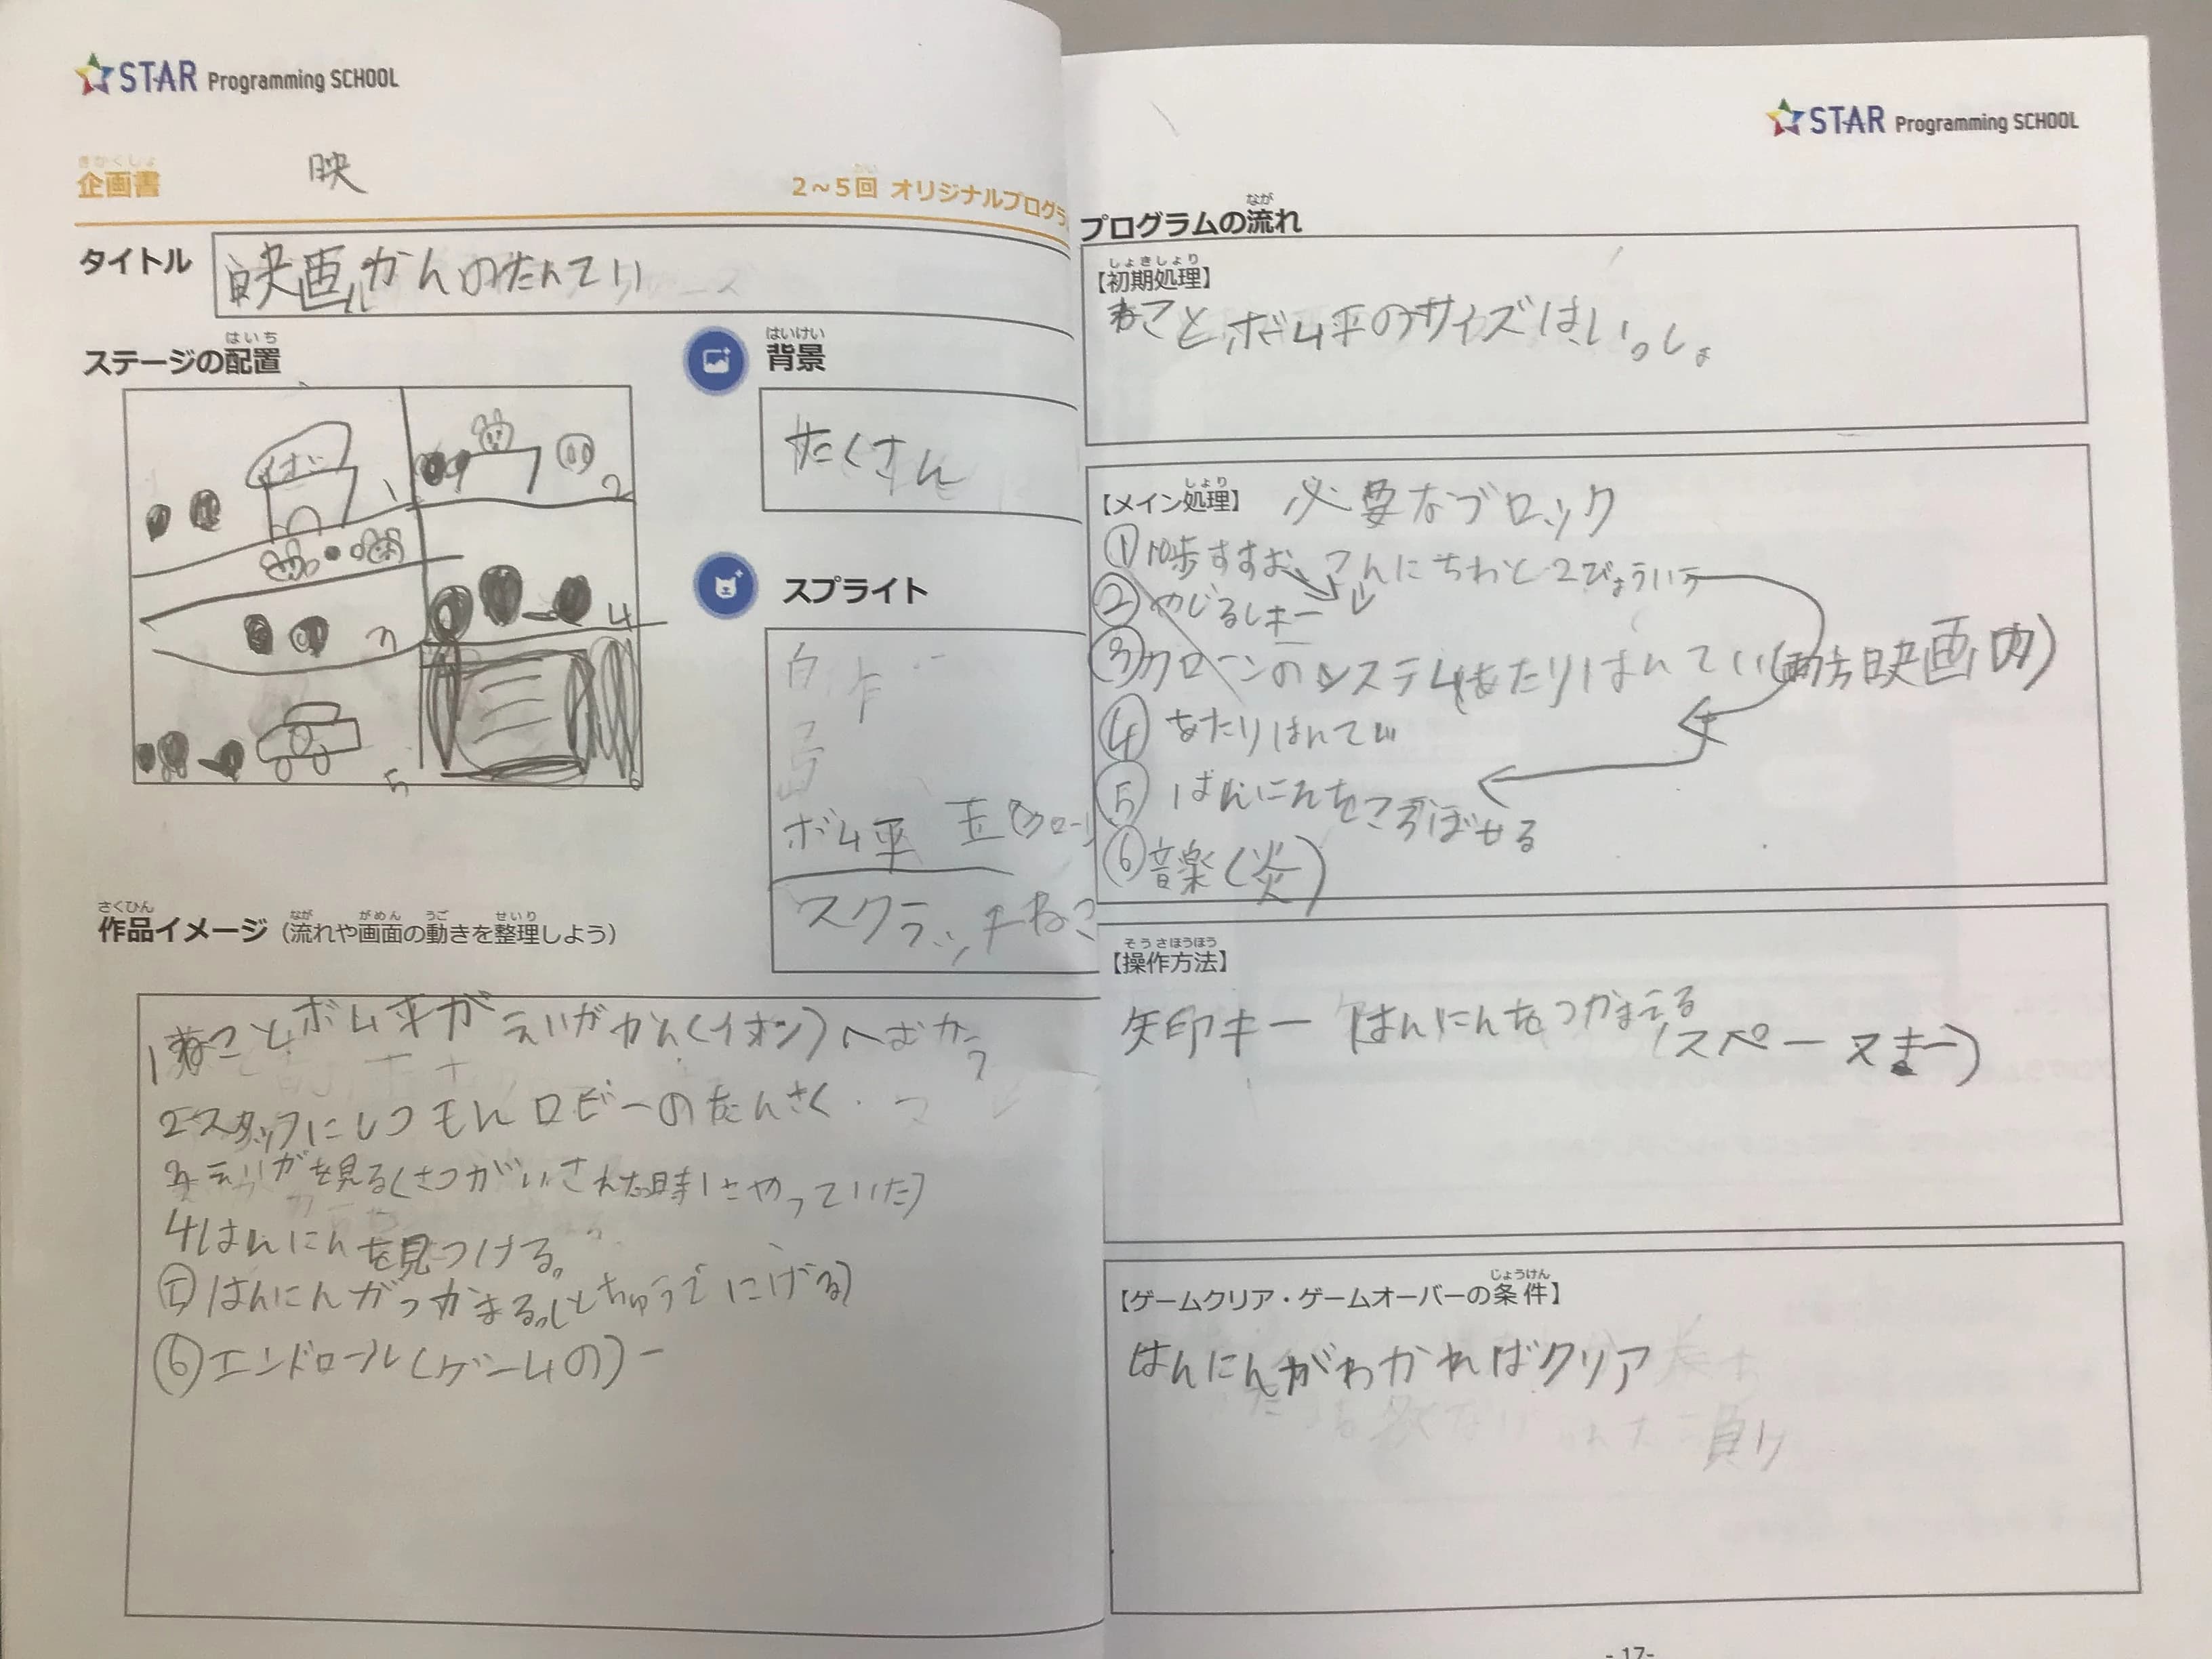 STAR Programming SCHOOL
きかくしょ
企画書
映
かい
2~5回 オリジナルプログラ
タイトル
映画かんのたんてい
はいち
ステージの配置
1
2
3
4
5
6
はいけい
背景
たくさん
スプライト
ボム平 玉(クロー
スクラッチねこ
さくひん なが がめん うご せいり
作品イメージ(流れや画面の動きを整理しよう)
1ねことボム平がえいがかん(イオン)へむかう
2スタッフにしつもんロビーのたんさく
3えいがを見る(さつがいされた時にやっていた)
4はんにんを見つける。
⑤はんにんがつかまる。(とちゅうでにげる)
⑥エンドロール(ゲームの)ー
STAR Programming SCHOOL
なが
プログラムの流れ
しょきしょり
【初期処理】
ねことボム平のサイズはいっしょ
しょり
【メイン処理】 必要なブロック
①10歩すすむ、こんにちわと2びょういう
②やじるしキー
③クローンのシステム(あたりはんてい(映画内)
④あたりはんてい
⑤はんにんをころばせる
⑥音楽(炎)
そうさほうほう
【操作方法】
矢印キー はんにんをつかまえる
(スペースキー)
じょうけん
【ゲームクリア・ゲームオーバーの条件】
はんにんがわかればクリア
負け
- 17-